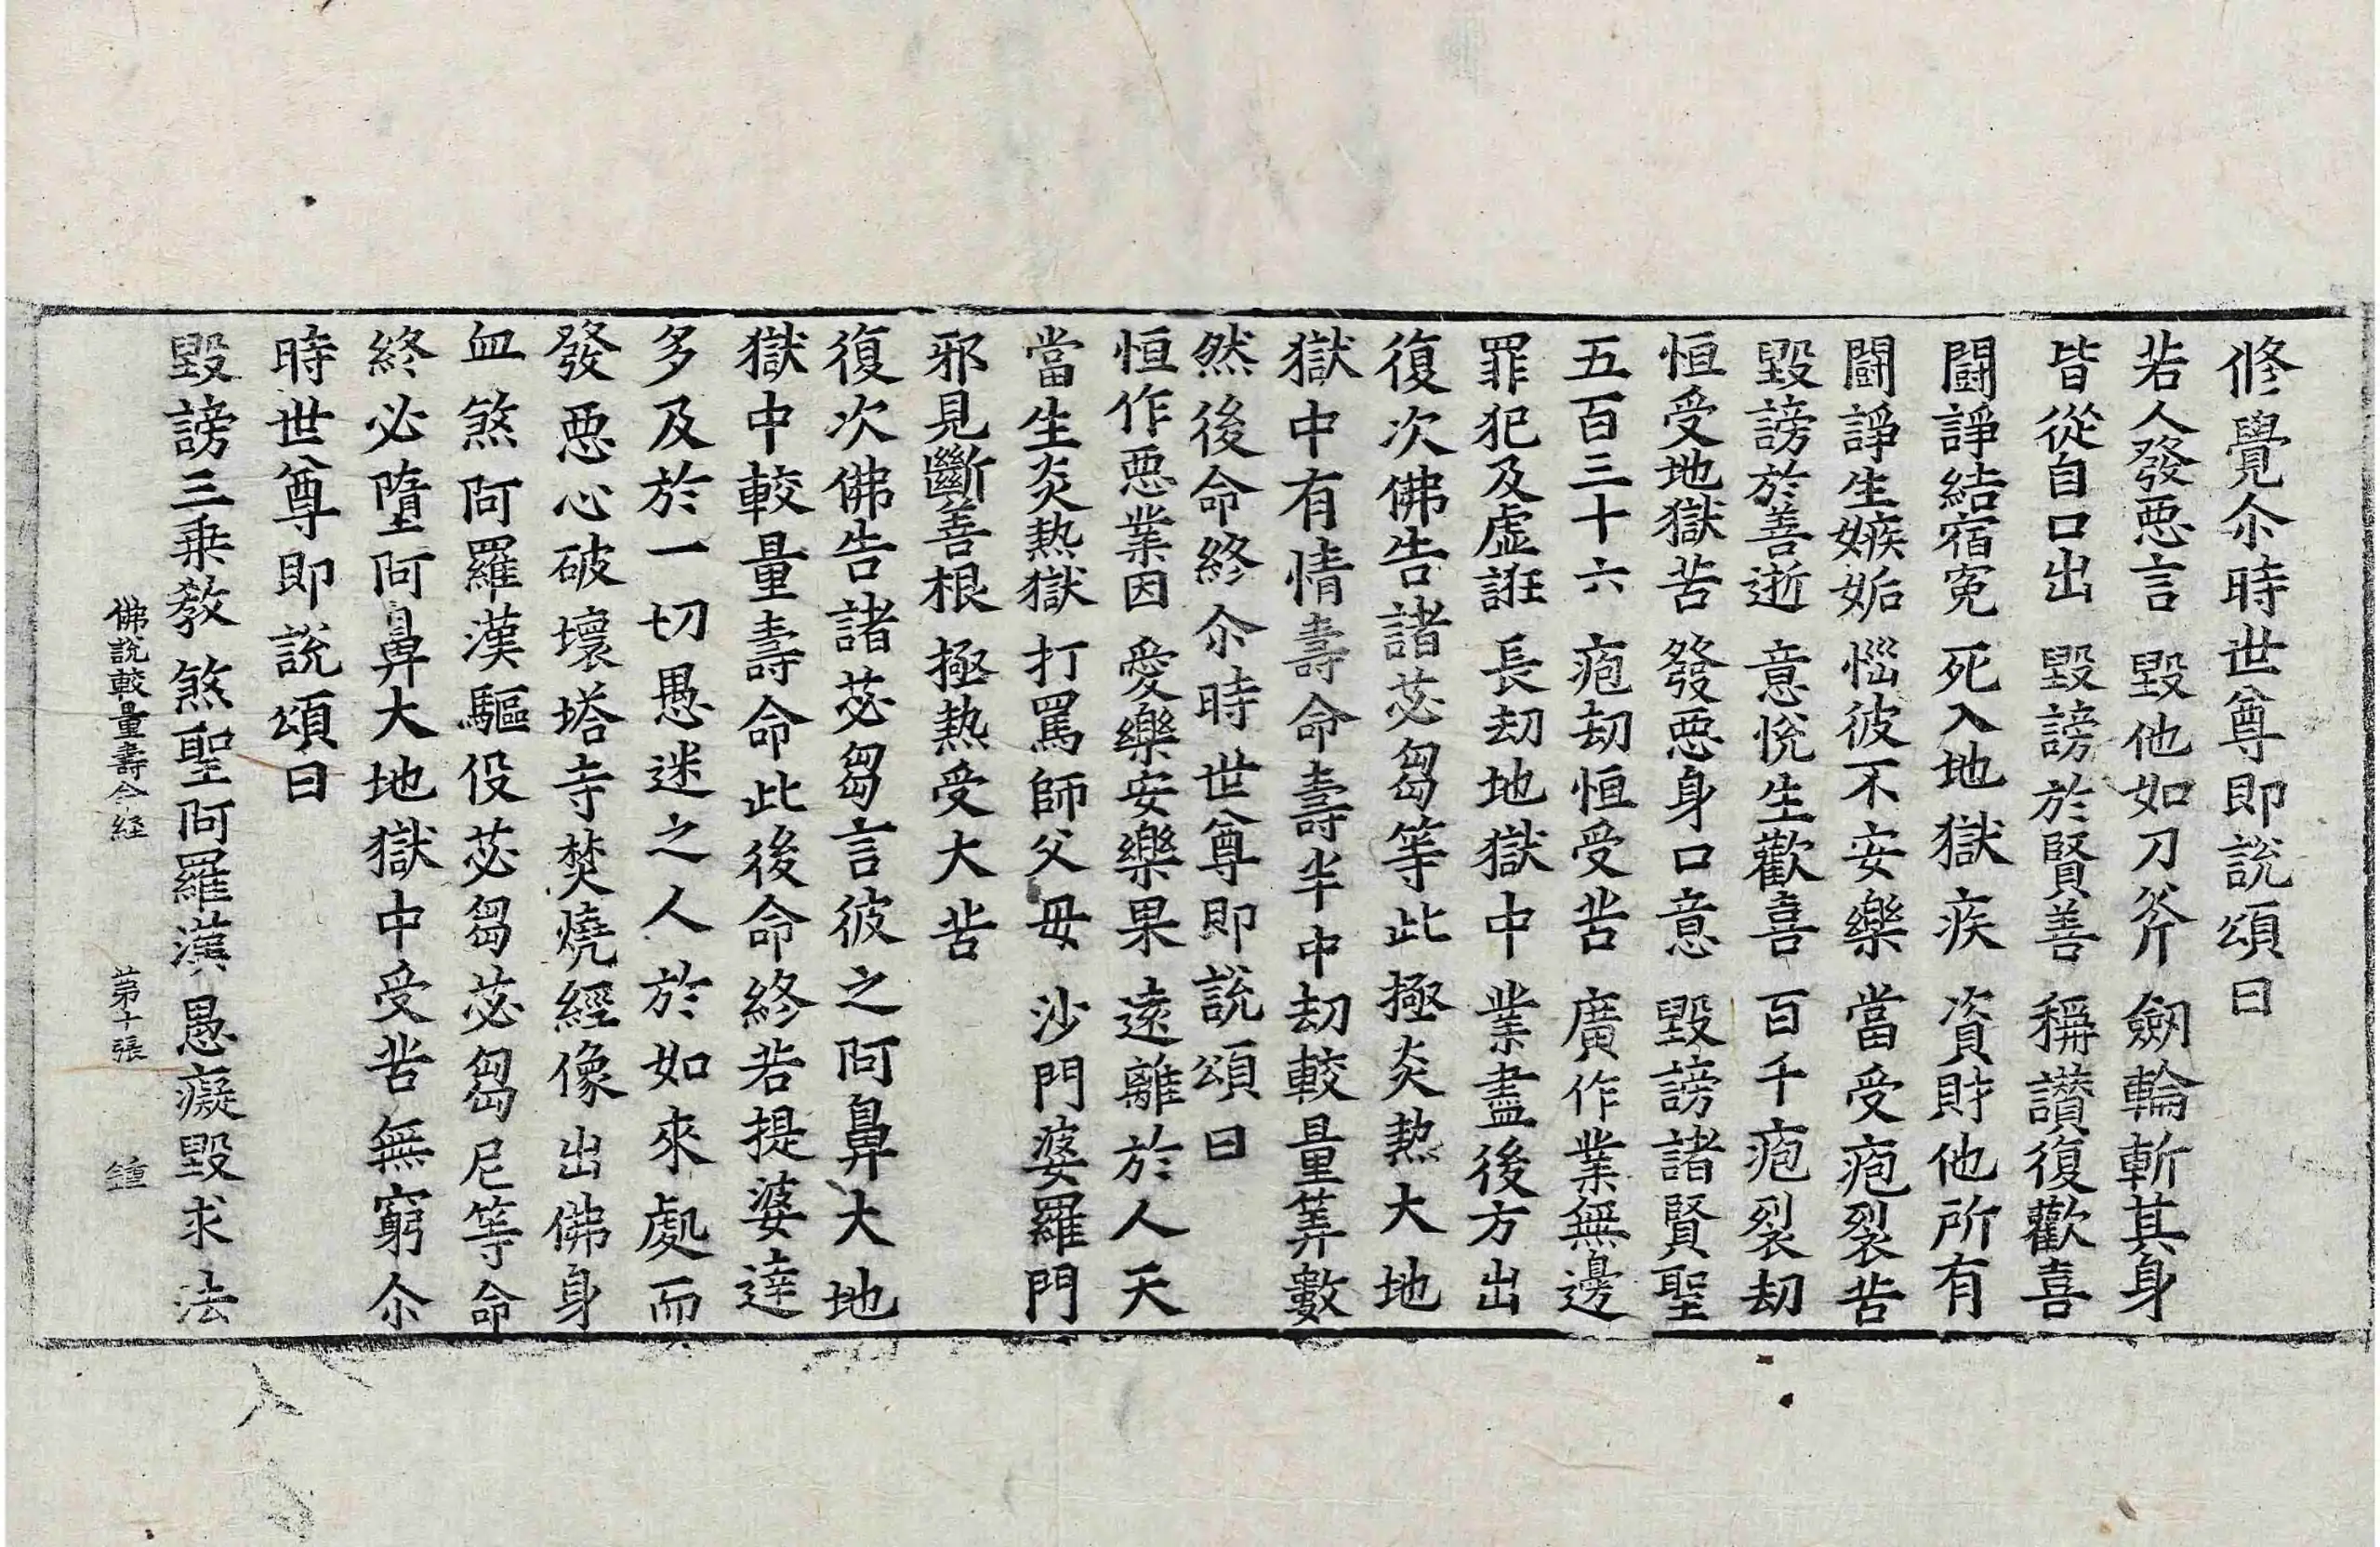 修覺尒時世尊即說頌曰
若人發惡言 毀他如刀斧 劒輪斬其身
皆從自口出 毀謗於賢善 稱讃復歡喜
鬪諍結宿寃 死入地獄疾 資財他所有
鬪諍生嫉妬 惱彼不安樂 當受疱裂苦
毀謗於善逝 意悅生歡喜 百千疱裂刧
恒受地獄苦 發惡身口意 毀謗諸賢聖
五百三十六 疱刧恒受苦 廣作業無邊
罪犯及虛誑 長刧地獄中 業盡後方出
復次佛告諸苾芻等此極炎熱大地
獄中有情壽命壽半中刧較量筭數
然後命終尒時世尊即說頌曰
恒作惡業因 愛樂安樂果 遠離於人天
當生炎熱獄 打罵師父母 沙門婆羅門
邪見斷善根 極熱受大苦
復次佛告諸苾芻言彼之阿鼻大地
獄中較量壽命此後命終若提婆達
多及於一切愚迷之人於如來處而
發惡心破壞塔寺焚燒經像出佛身
血煞阿羅漢驅役苾芻苾芻尼等命
終必墮阿鼻大地獄中受苦無窮尒
時世尊即說頌曰
毀謗三乗教 煞聖阿羅漢 愚癡毀求法
佛說較量壽命経 苐十張 鍾